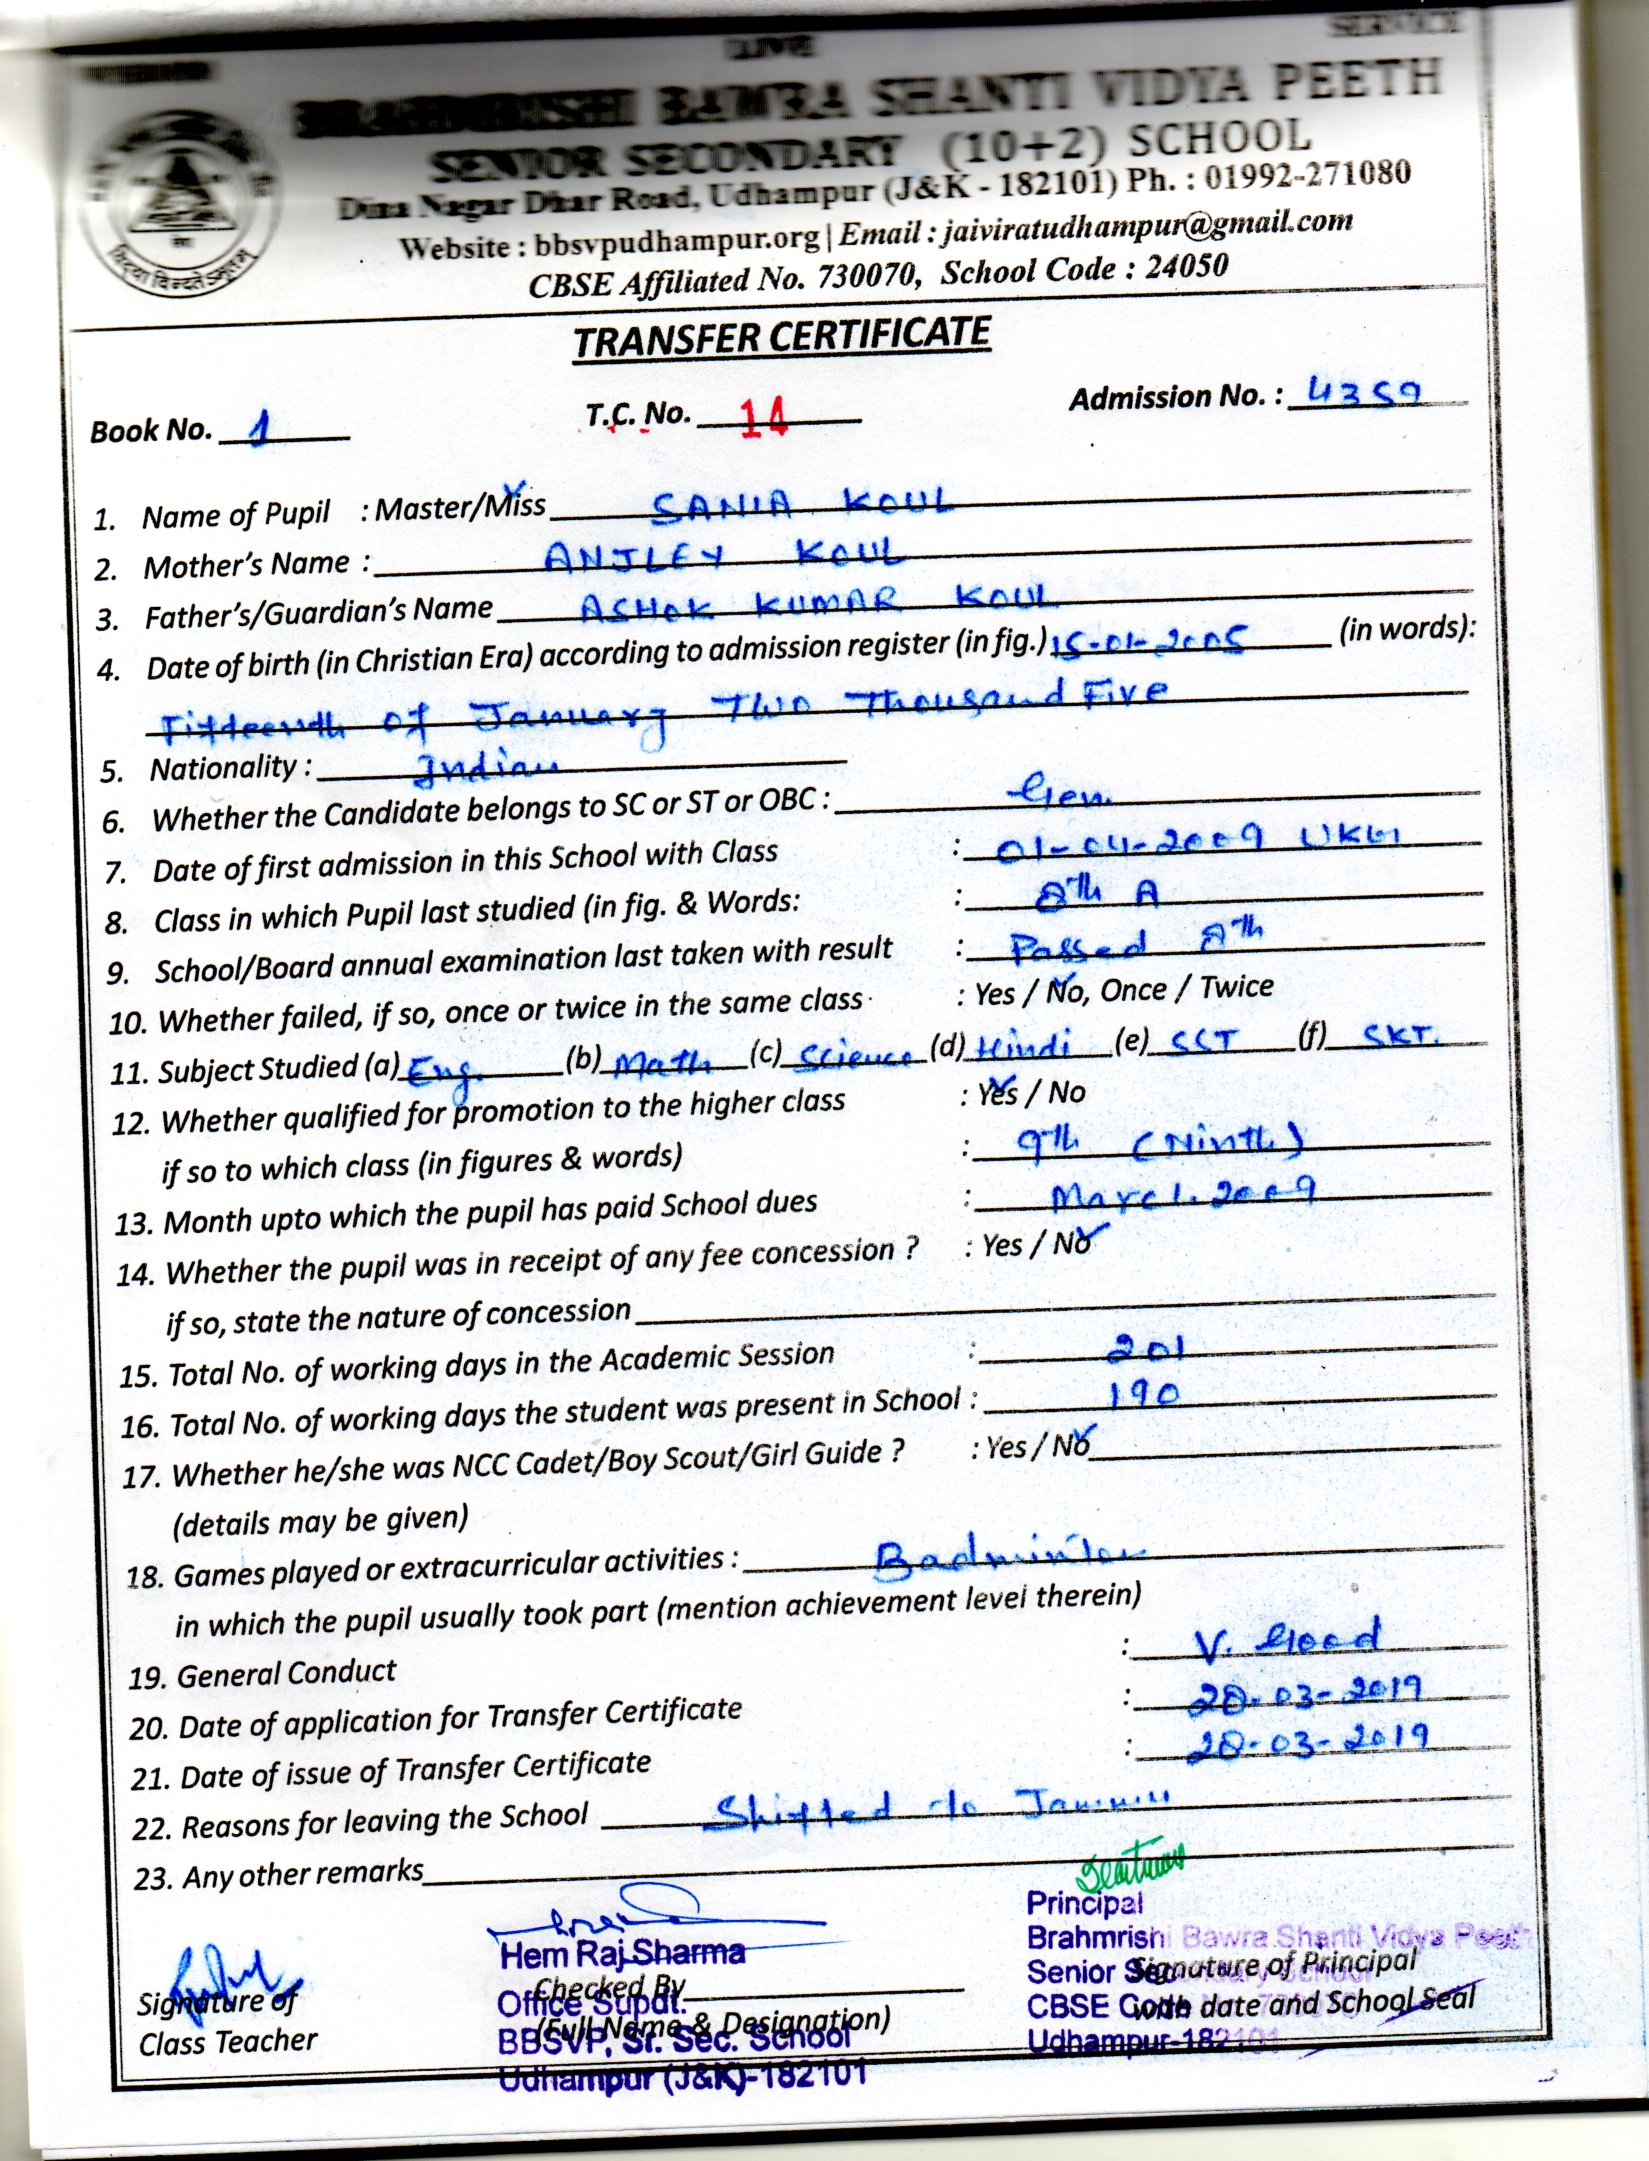 LOVE
SERVICE
BRAHMRISHI BAWRA SHANTI VIDYA PEETH
SENIOR SECONDARY (10+2) SCHOOL
Dina Nagar Dhar Road, Udhampur (J&K - 182101) Ph. : 01992-271080
Website : bbsvpudhampur.org | Email : jaiviratudhampur@gmail.com
CBSE Affiliated No. 730070, School Code : 24050
TRANSFER CERTIFICATE
Book No. 1 T.C. No. 14 Admission No. : 4359
1. Name of Pupil : Master/Miss SANIA KOUL
2. Mother's Name : ANJLEY KOUL
3. Father's/Guardian's Name ASHOK KUMAR KOUL
4. Date of birth (in Christian Era) according to admission register (in fig.) 15-01-2005 (in words):
Fifteenth of January Two Thousand Five
5. Nationality : Indian
6. Whether the Candidate belongs to SC or ST or OBC : Gen.
7. Date of first admission in this School with Class : 01-04-2009 UKG
8. Class in which Pupil last studied (in fig. & Words: : 8th A
9. School/Board annual examination last taken with result : Passed 8th
10. Whether failed, if so, once or twice in the same class : Yes / No, Once / Twice
11. Subject Studied (a) Eng. (b) Math (c) Science (d) Hindi (e) SST (f) SKT.
12. Whether qualified for promotion to the higher class : Yes / No
if so to which class (in figures & words) : 9th (Ninth)
13. Month upto which the pupil has paid School dues : March. 2009
14. Whether the pupil was in receipt of any fee concession ? : Yes / No
if so, state the nature of concession
15. Total No. of working days in the Academic Session : 201
16. Total No. of working days the student was present in School : 190
17. Whether he/she was NCC Cadet/Boy Scout/Girl Guide ? : Yes / No
(details may be given)
18. Games played or extracurricular activities : Badminton
in which the pupil usually took part (mention achievement level therein)
19. General Conduct : V. Good
20. Date of application for Transfer Certificate : 28-03-2019
21. Date of issue of Transfer Certificate : 28-03-2019
22. Reasons for leaving the School Shifted to Jammu
23. Any other remarks
Signature of
Class Teacher
Hem Raj Sharma
Checked By
Office Supdt.
(Full Name & Designation)
BBSVP, Sr. Sec. School
Udhampur (J&K)-182101
Principal
Brahmrishi Bawra Shanti Vidya Peeth
Senior Secondary School
Signature of Principal
CBSE Code
with date and School Seal
Udhampur-182101